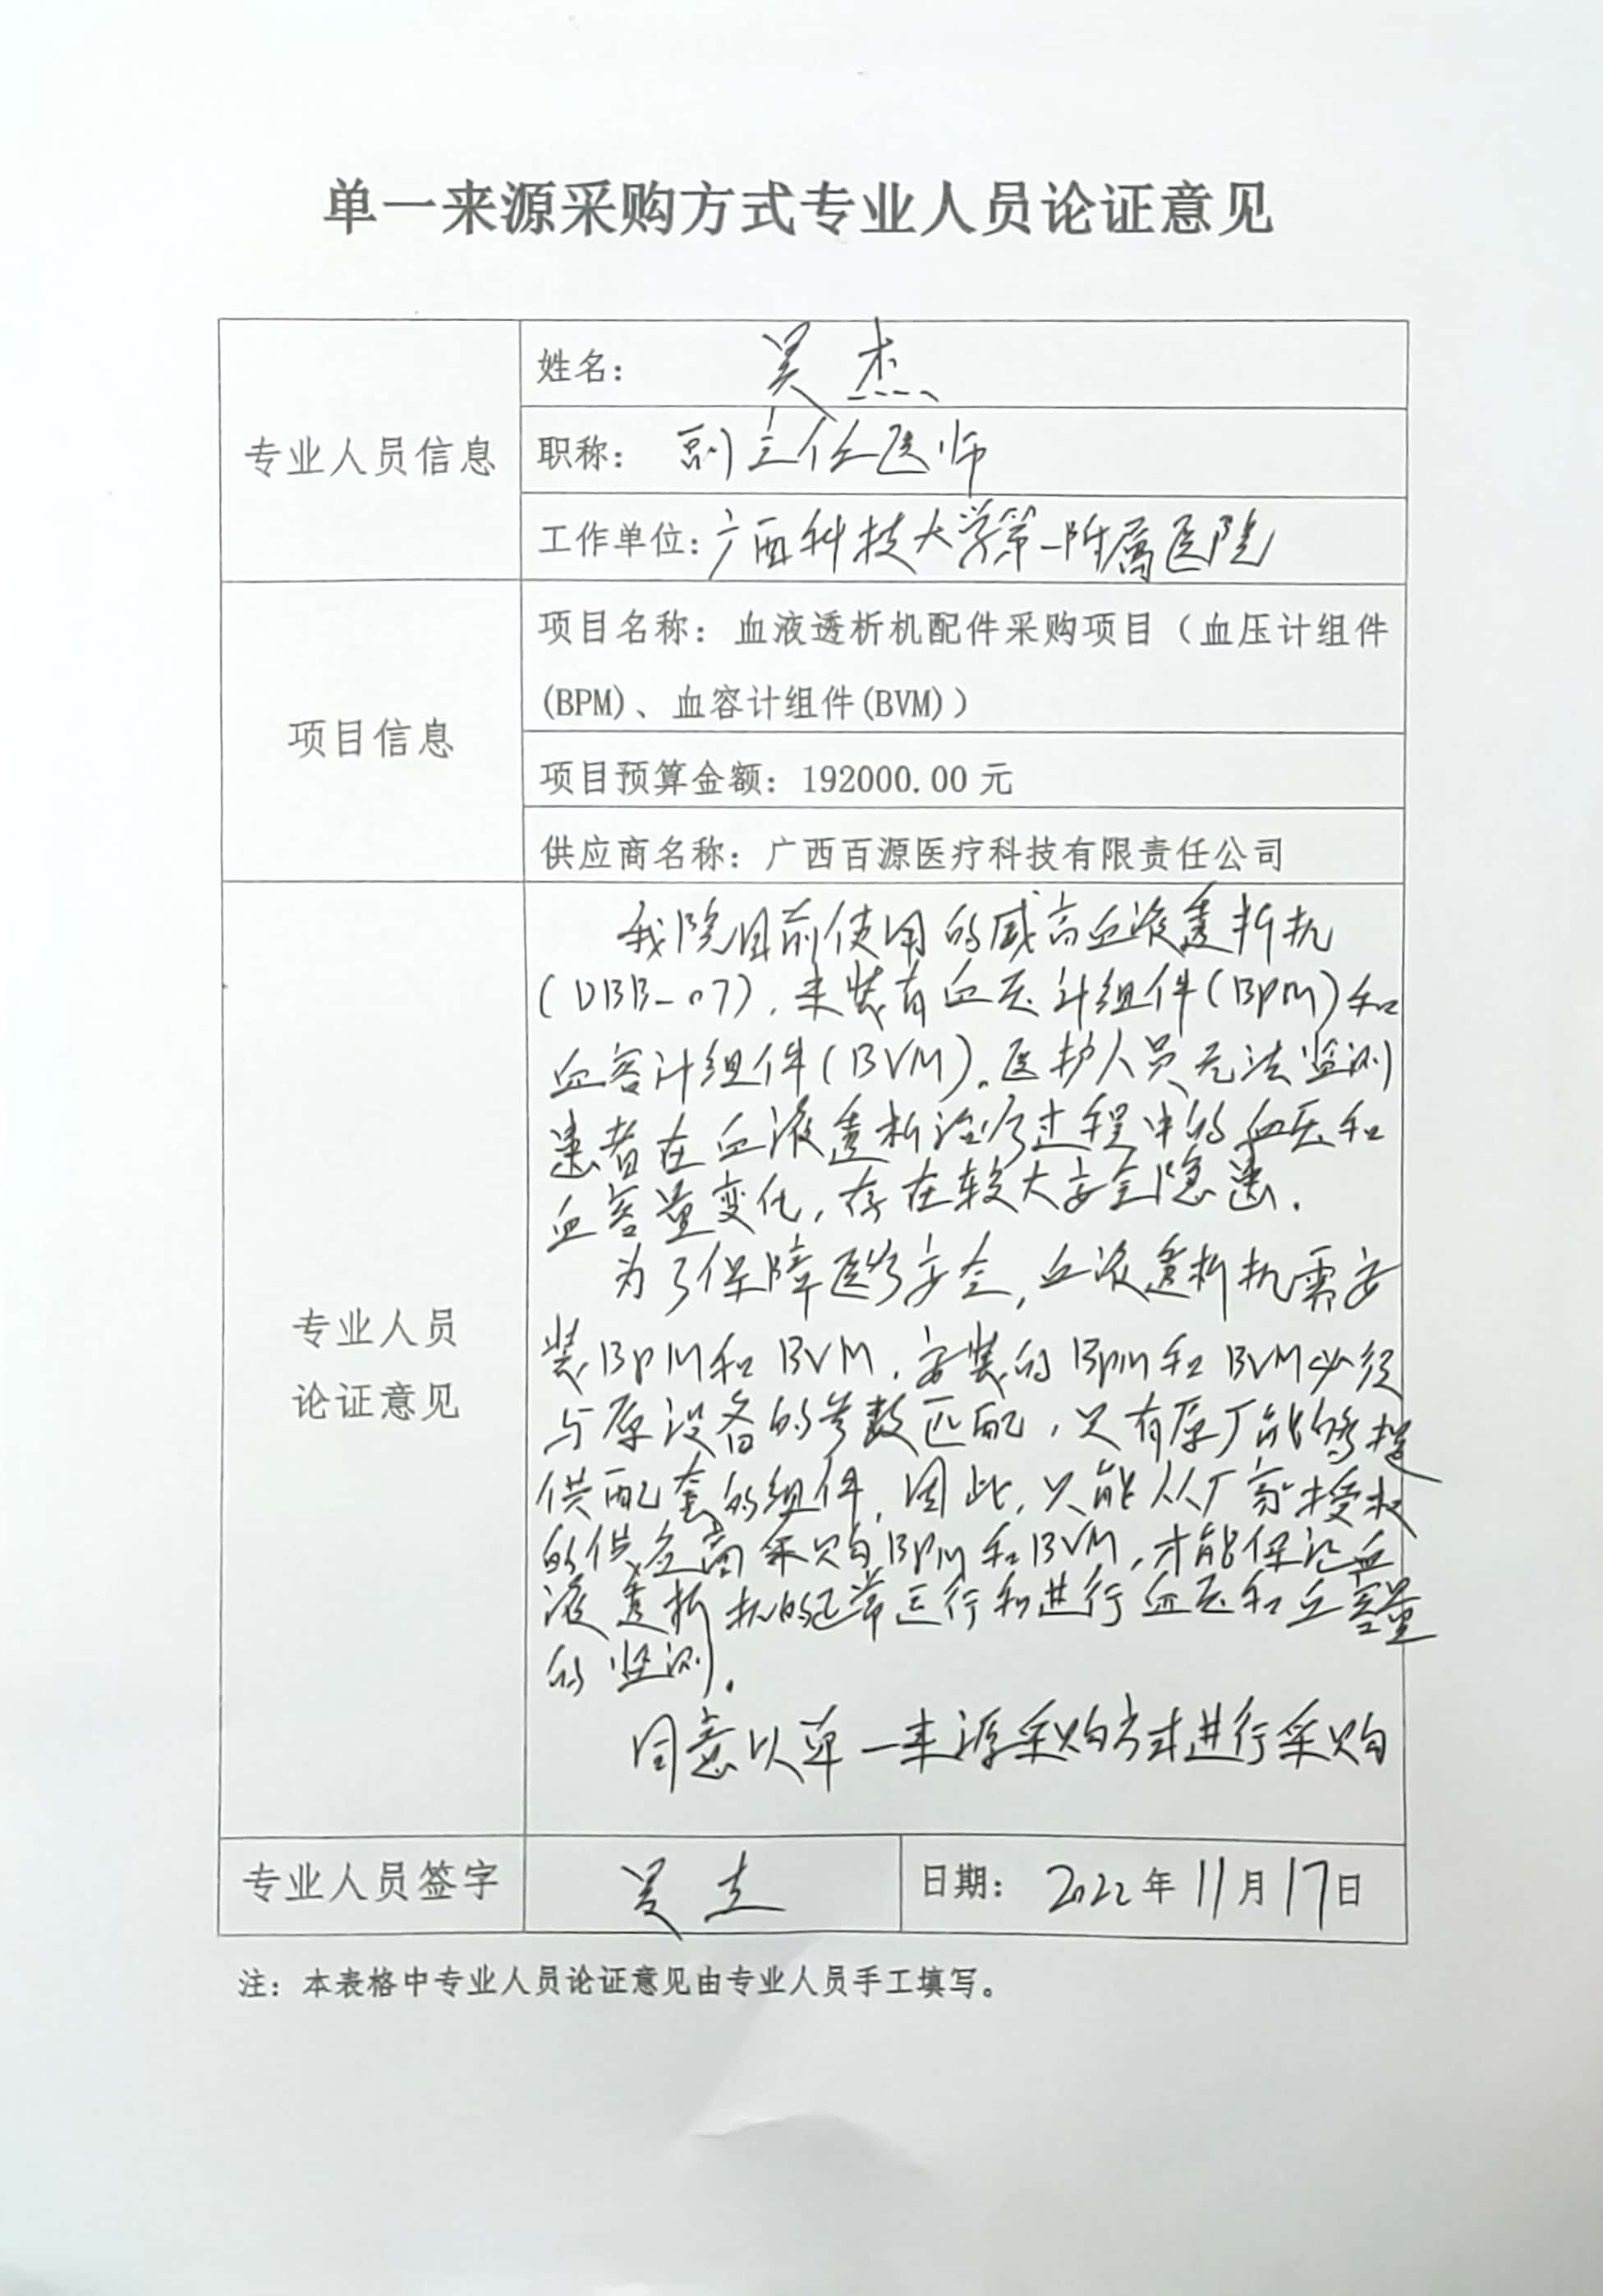 单一来源采购方式专业人员论证意见
专业人员信息
姓名： 吴杰
职称： 副主任医师
工作单位：广西科技大学第一附属医院
项目信息
项目名称：血液透析机配件采购项目（血压计组件
(BPM)、血容计组件(BVM)）
项目预算金额：192000.00元
供应商名称：广西百源医疗科技有限责任公司
专业人员
论证意见
我院目前使用的威高血液透析机
(DBB-07)，未装有血压计组件(BPM)和
血容计组件(BVM)。医护人员无法监测
患者在血液透析治疗过程中的血压和
血容量变化，存在较大安全隐患.
为了保障医疗安全，血液透析机需安
装BPM和BVM，安装的BPM和BVM必须
与原设备的参数匹配，只有原厂能够提
供配套的组件，因此，只能从厂家授权
的供应商采购BPM和BVM，才能保证血
液透析机的正常运行和进行血压和血容量
的监测。
同意以单一来源采购方式进行采购
专业人员签字
吴杰
日期： 2022年11月17日
注：本表格中专业人员论证意见由专业人员手工填写。